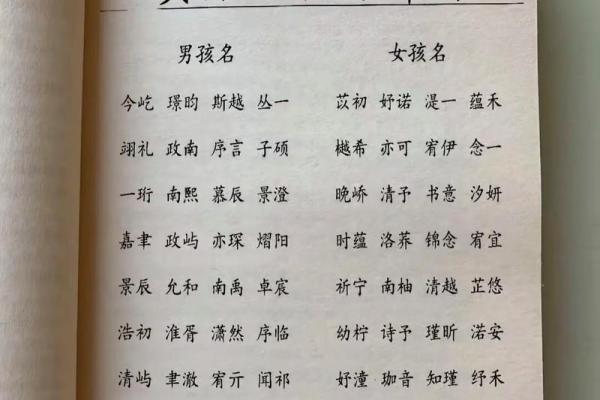 男孩名 女孩名
今屹 璟昀 斯越 丛一 苡初 妤诺 湜一 蕴禾
翊礼 政南 序言 子硕 樾希 亦可 宥伊 念一
一珩 南熙 慕辰 景澄 晚峤 清予 书意 汐妍
嘉聿 政屿 亦琛 熠阳 时蕴 洛荞 锦念 宥宜
景辰 允和 南禹 卓宸 祈宁 南柚 清越 芷悠
浩初 淮胥 潇然 序临 幼柠 诗予 瑾昕 渃安
清屿 聿澈 宥亓 闻祁 妤潼 珈音 知瑾 纾禾